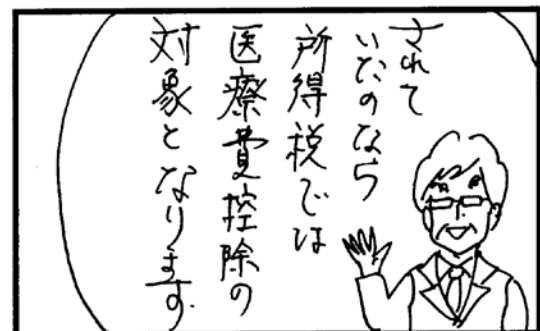 されて
いたのなら
所得税では
医療費控除の
対象となります.